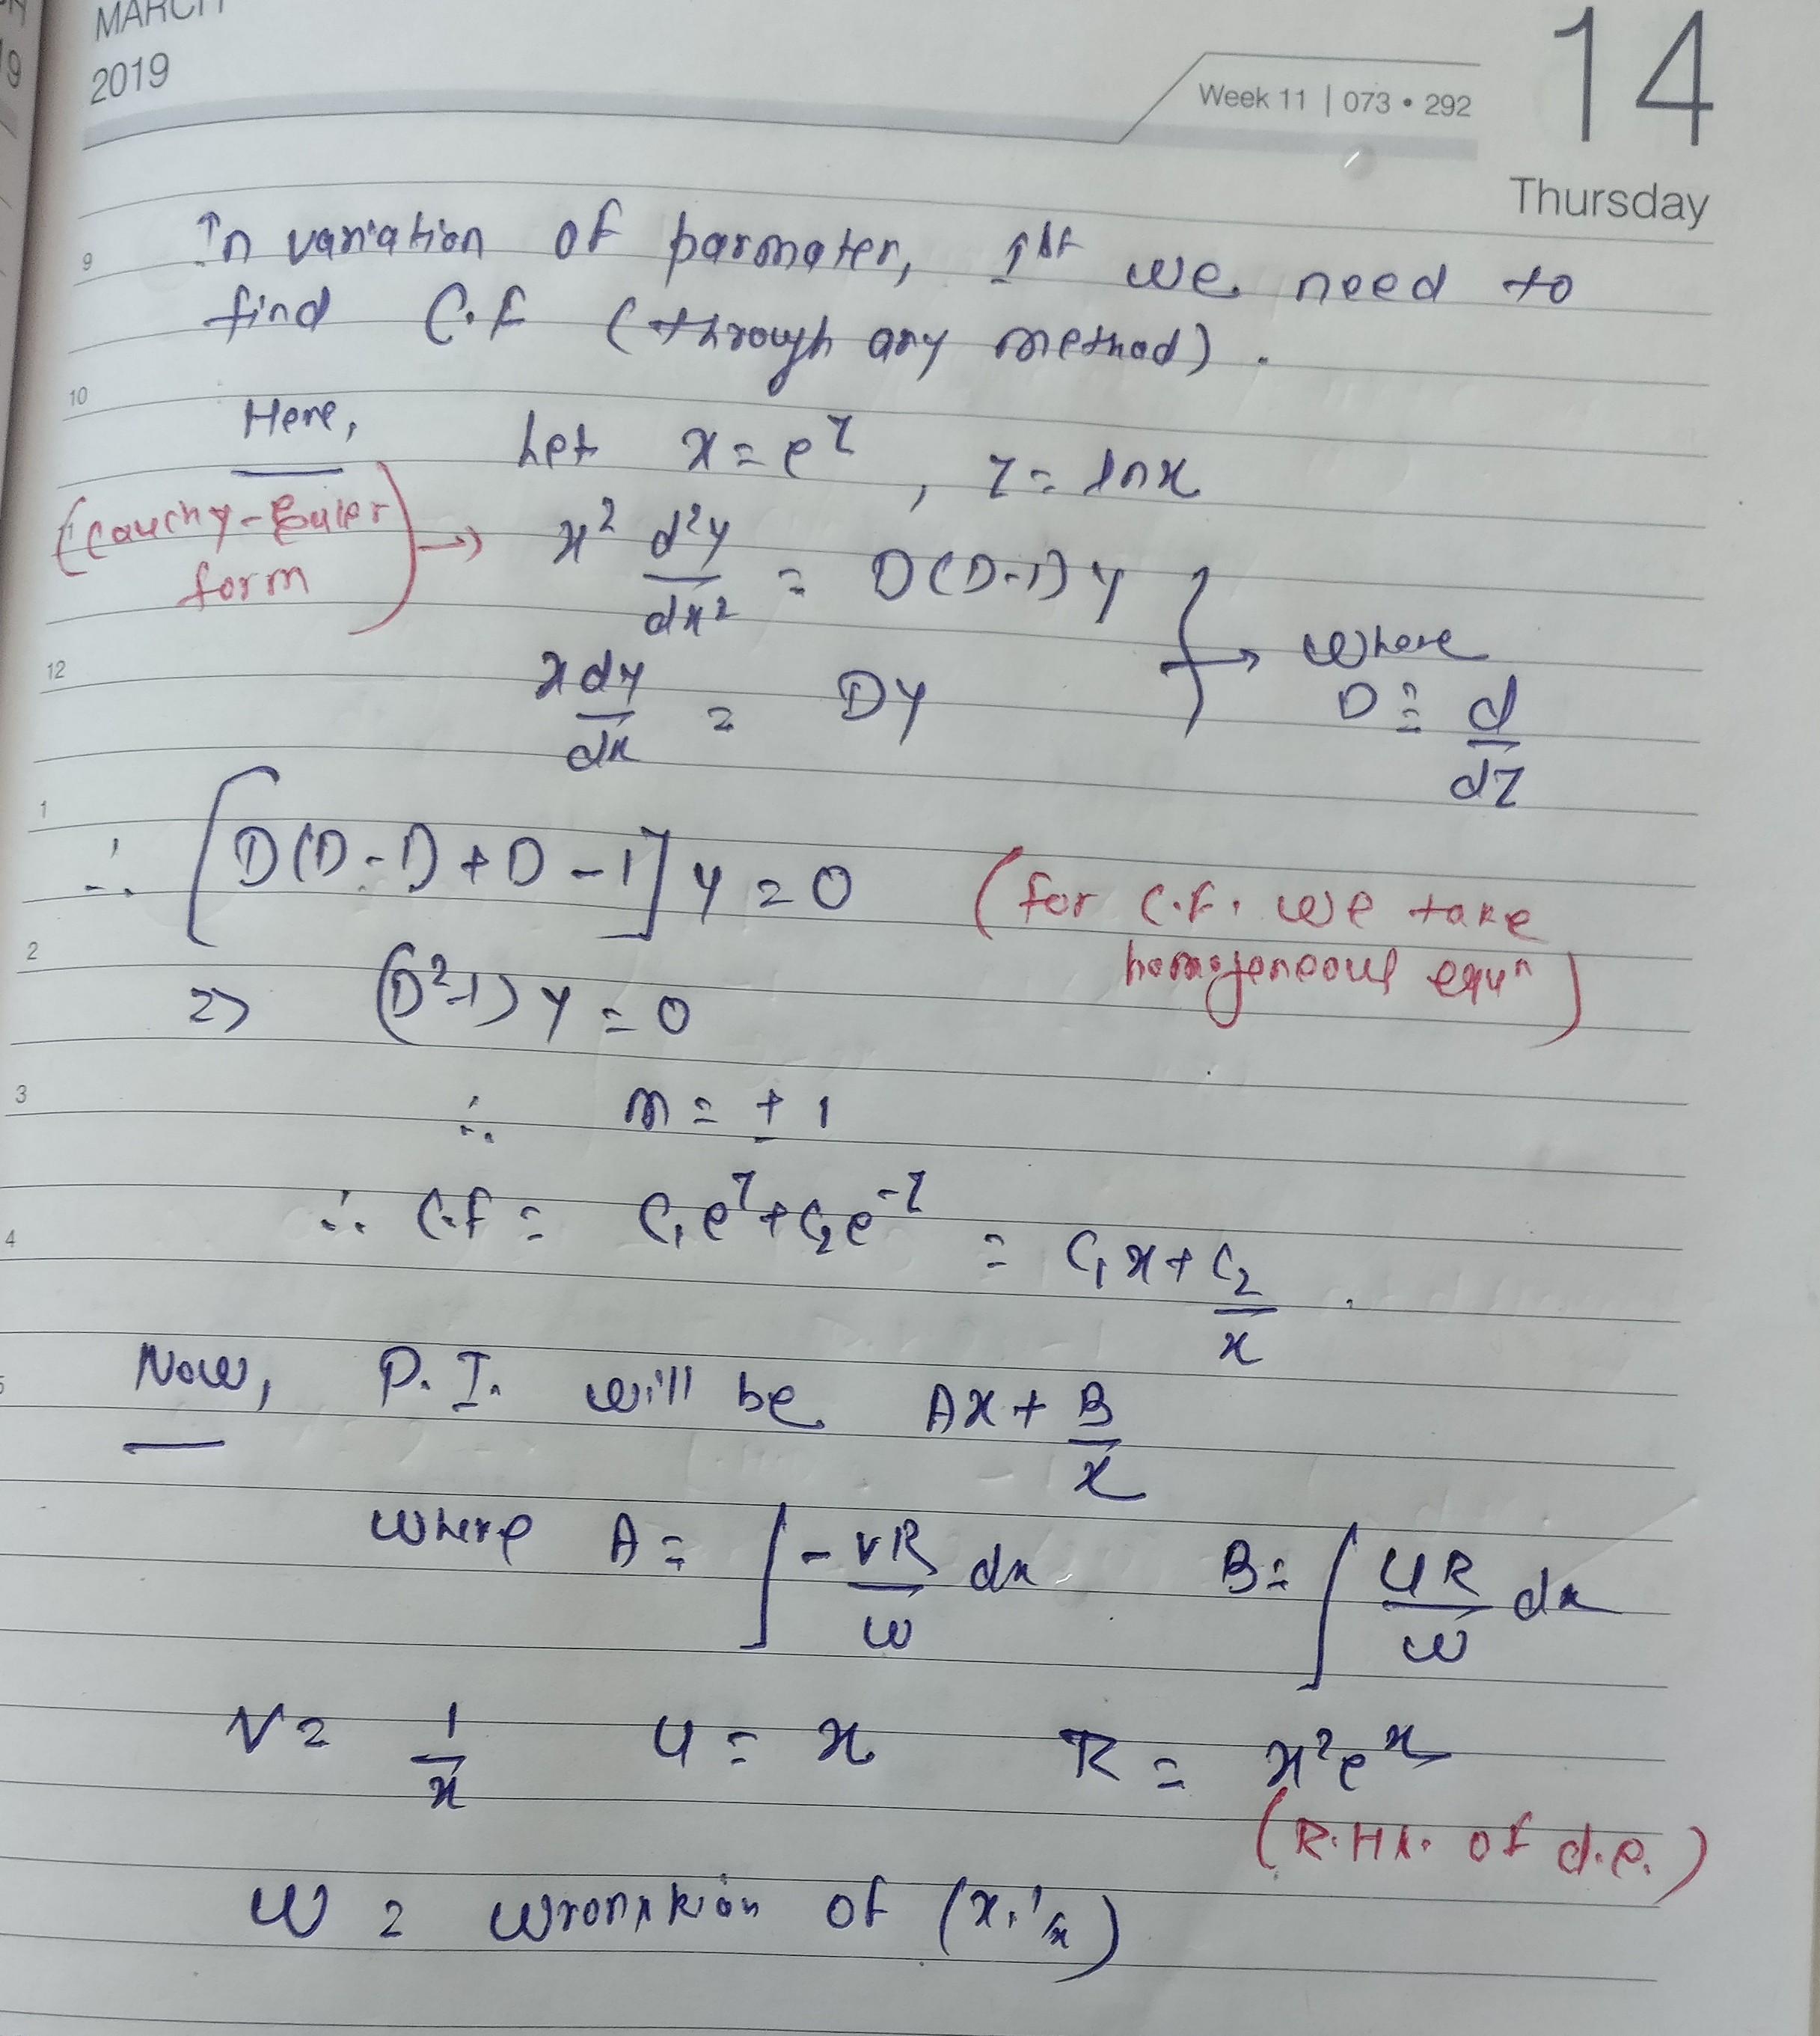 MARCH
2019
Week 11 | 073 • 292
14
Thursday
9
In variation of parmater, 1st we need to
find C.F (through any method).
10
Here, Let x = e^z , z = ln x
(Cauchy-Euler form) → x² d²y/dx² = D(D-1)y
12
x dy/dx = Dy } → where D ≡ d/dz
1
∴ [D(D-1)+D-1] y = 0 (for C.F. we take
2
homogeneous equn)
=> (D²-1) y = 0
3
∴ m = ± 1
4
∴ C.F = C₁e^z + C₂e^-z = C₁x + C₂/x .
5
Now, P.I. will be Ax + B/x
where A = ∫ -vR/w dx B = ∫ uR/w dx
v = 1/x u = x R = x²e^x
(R.H.s. of d.e.)
w = wronskion of (x, 1/x)